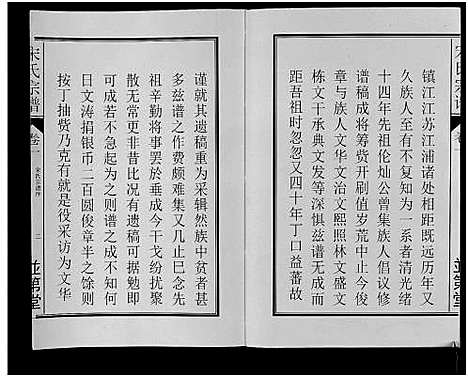 宋氏宗譜
鎮江江蘇江浦诸处相距既远历年又
久族人至有不复知为一系者清光緒
十四年先祖伦灿公曾集族人倡议修
譜稿成将筹费开刷值岁荒中止今俊
章与族人文华文治文熙照林文盛文
栋文干承典文发等深惧兹谱无成而
距吾祖时忽忽又四十年丁口益蕃故
謹就其遗稿重为采辑然族中贫者甚
多兹谱之作费颇难集又几止巳念先
祖辛勤将事罢於垂成今干戈纷扰聚
散无常更非昔比况有遗稿可据勉即
可成若不急起为之则谱之成不知何
日文涛捐银币二百圆俊章半之馀则
按丁抽赀乃克有就是役采访为文华
宋氏宗譜
卷一
宋氏宗谱序
二
並第堂
並第堂